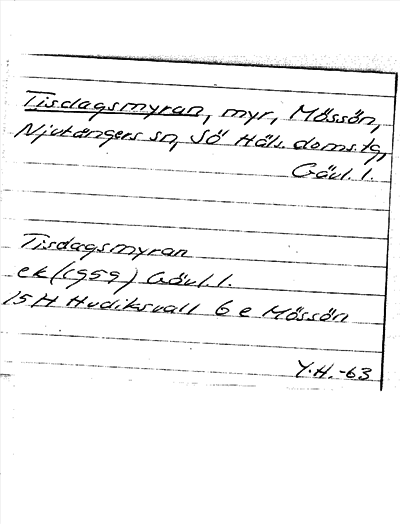 Tisdagsmyran, myr, Mössön,
Njutångers sn, Sö Häls. doms.tg,
Gävl. l.
Tisdagsmyran
ek (1959) Gävl. l.
15 H Hudiksvall 6 e Mössön
Y.H. -63